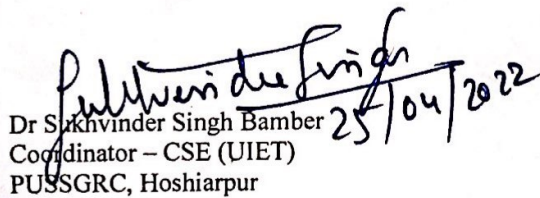 Sukhvinder Singh
25/04/2022
Dr Sukhvinder Singh Bamber
Coordinator – CSE (UIET)
PUSSGRC, Hoshiarpur